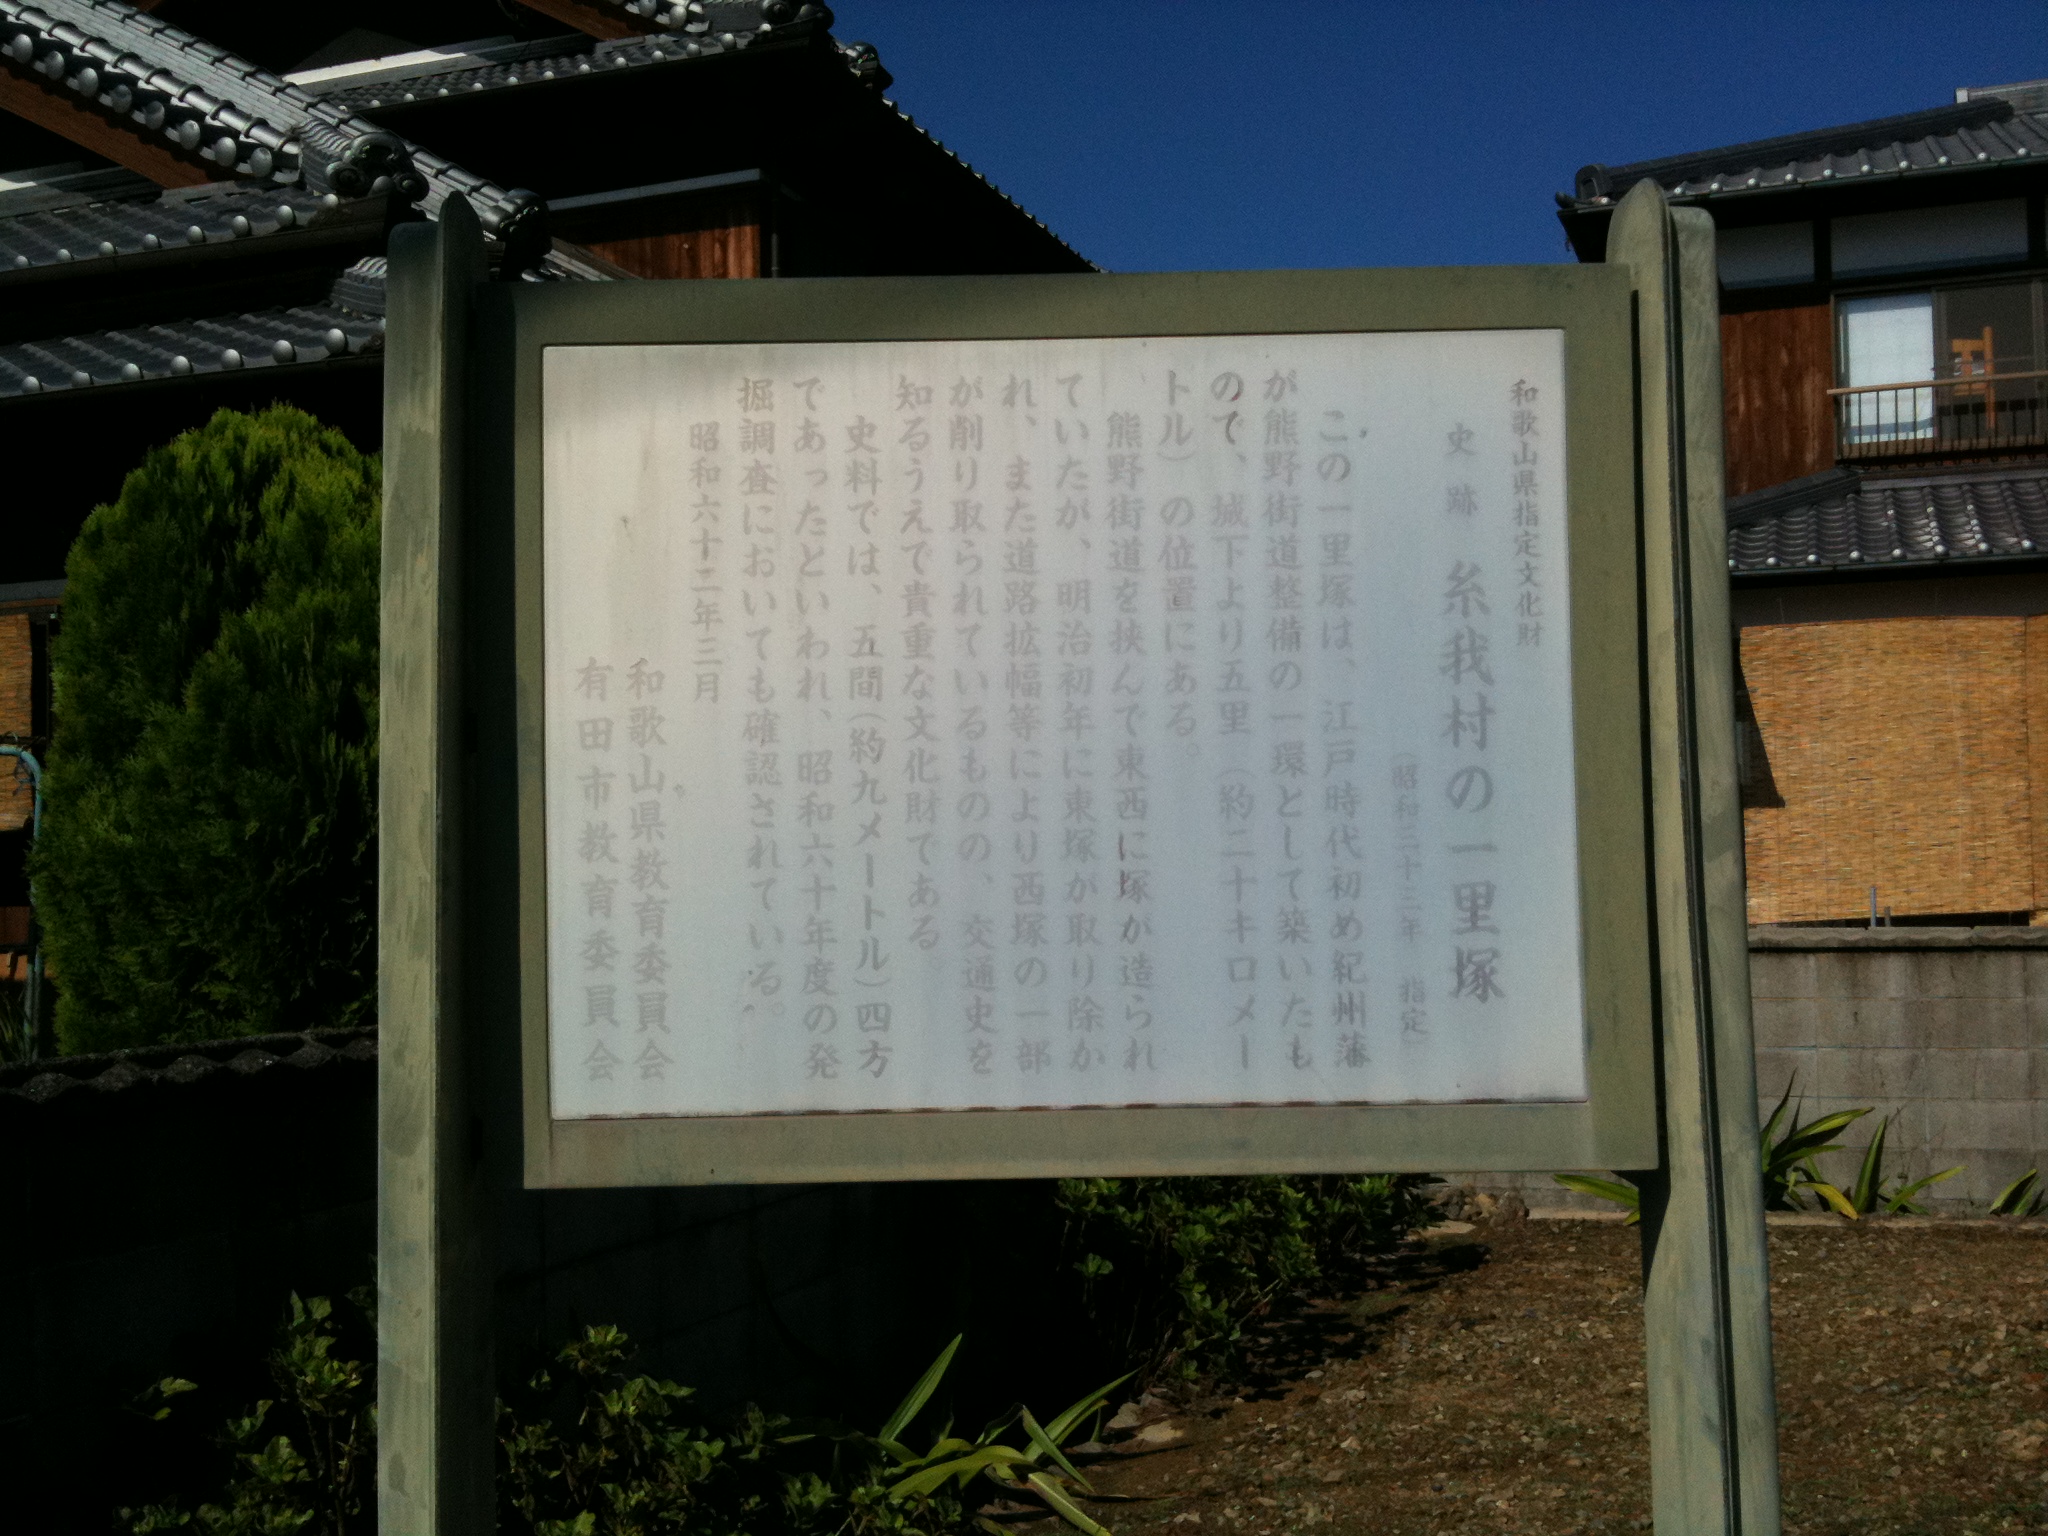 和歌山県指定文化財
史跡 糸我村の一里塚
(昭和三十三年 指定)
この一里塚は、江戸時代初め紀州藩
が熊野街道整備の一環として築いたも
ので、城下より五里(約二十キロメー
トル)の位置にある。
熊野街道を挟んで東西に塚が造られ
ていたが、明治初年に東塚が取り除か
れ、また道路拡幅等により西塚の一部
が削り取られているものの、交通史を
知るうえで貴重な文化財である。
史料では、五間(約九メートル)四方
であったといわれ、昭和六十年度の発
掘調査においても確認されている。
昭和六十二年三月
和歌山県教育委員会
有田市教育委員会